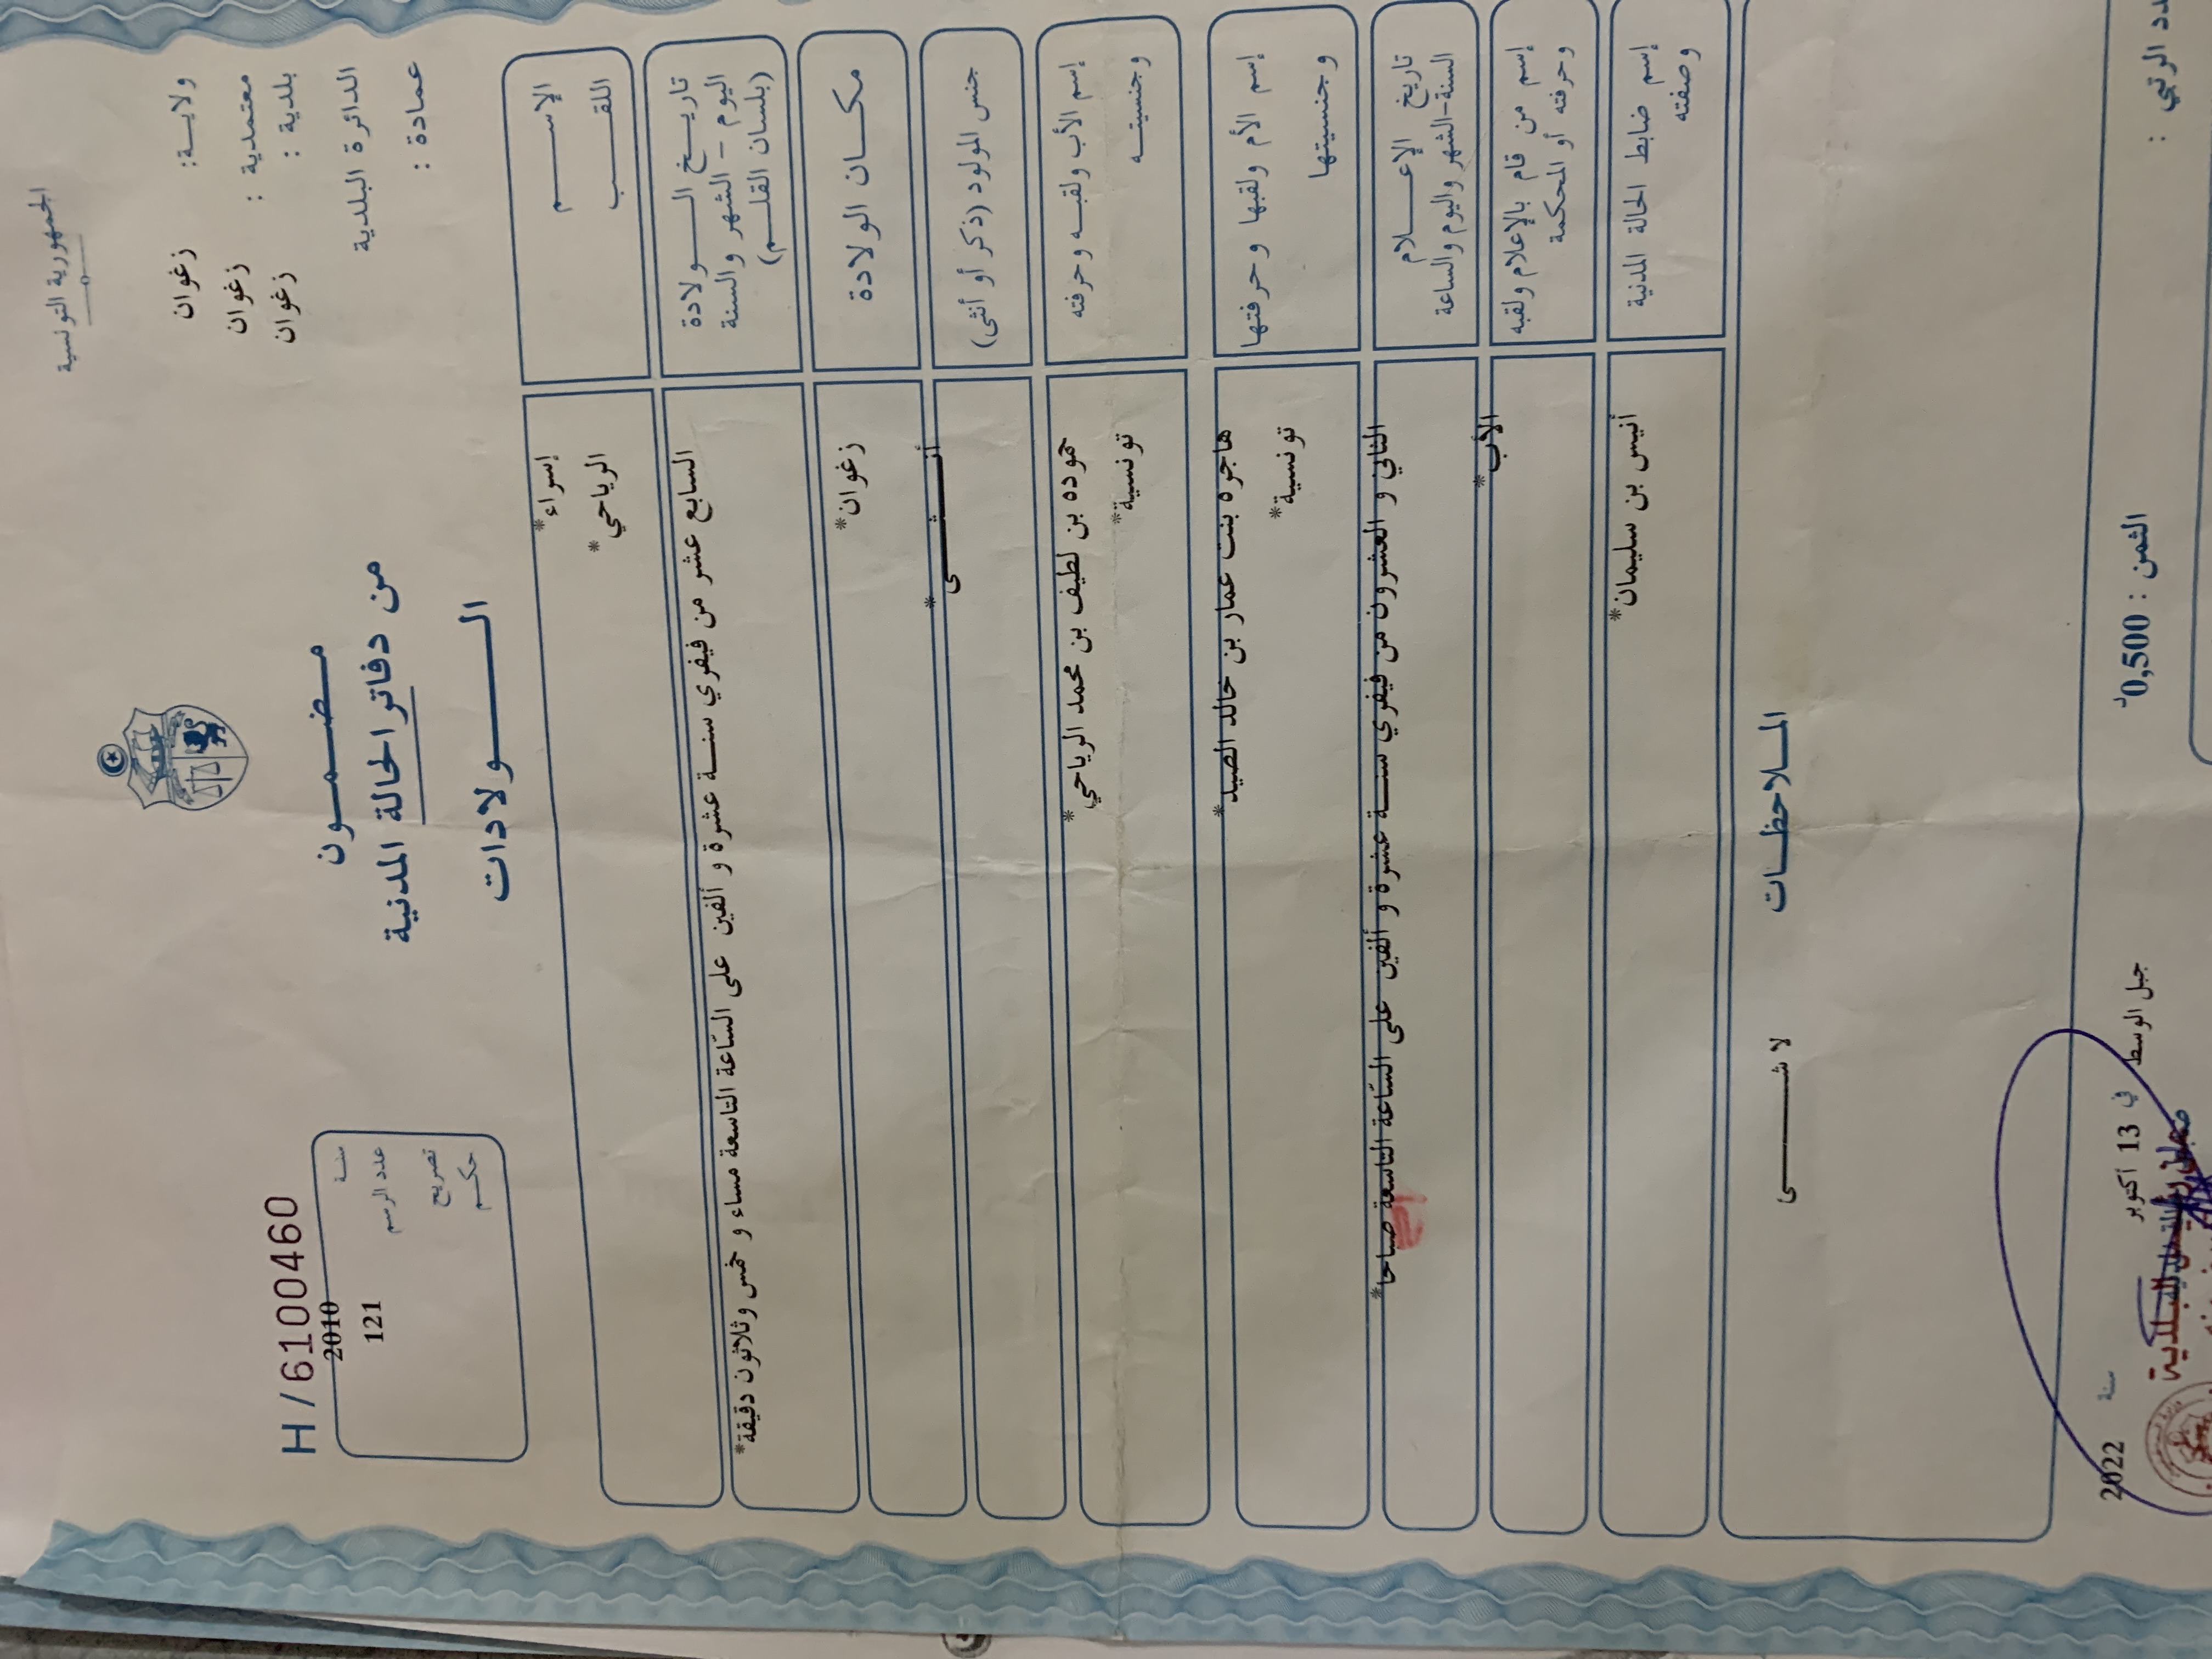 الجمهورية التونسية
ولاية: زغوان
معتمدية : زغوان
بلدية : زغوان
الدائرة البلدية
عمادة :
مضمون
من دفاتر الحالة المدنية
الولادات
H/6100460
سنة 2010
عدد الرسم 121
تصريح
حكم
الاسم إسراء*
اللقب الرياحي*
تاريخ الولادة
اليوم - الشهر والسنة
(بلسان القلم)
السابع عشر من فيفري سنة عشرة و ألفين على السّاعة التاسعة مساء و خمس وثلاثون دقيقة*
مكان الولادة زغوان*
جنس المولود (ذكر أو أنثى) أنثى*
إسم الأب ولقبه وحرفته حموده بن لطيف بن محمد الرياحي*
وجنسيته تونسية*
إسم الأم ولقبها وحرفتها هاجره بنت عمار بن خالد الصيد*
وجنسيتها تونسية*
تاريخ الإعلام
السنة-الشهر واليوم والساعة
الثاني و العشرون من فيفري سنة عشرة و ألفين على السّاعة التاسعة صباحا*
إسم من قام بالإعلام ولقبه
وحرفته أو المحكمة
الأب*
إسم ضابط الحالة المدنية
وصفته
أنيس بن سليمان*
الملاحظات
لا شيء
الثمن : 0,500د
جبل الوسط في 13 أكتوبر سنة 2022